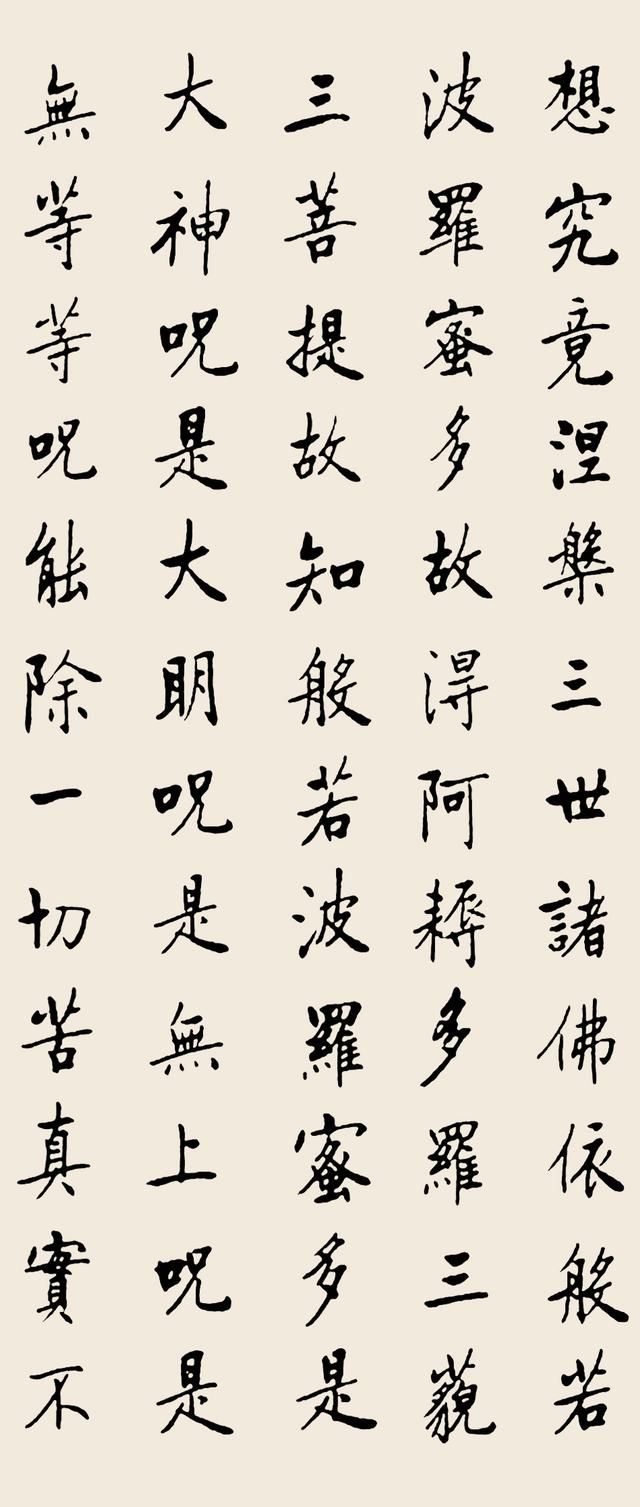 想究竟涅槃三世諸佛依般若
波羅蜜多故得阿耨多羅三藐
三菩提故知般若波羅蜜多是
大神呪是大明呪是無上呪是
無等等呪能除一切苦真實不